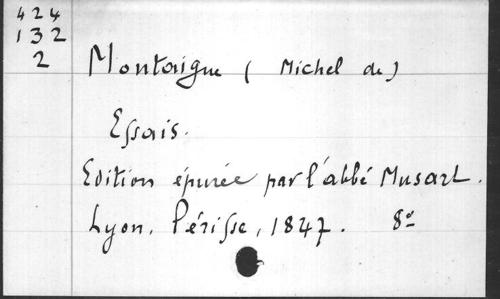 424
132
2
Montaigne ( Michel de )
Essais.
Edition épurée par l'abbé Musart.
Lyon, Périsse, 1847. 8º